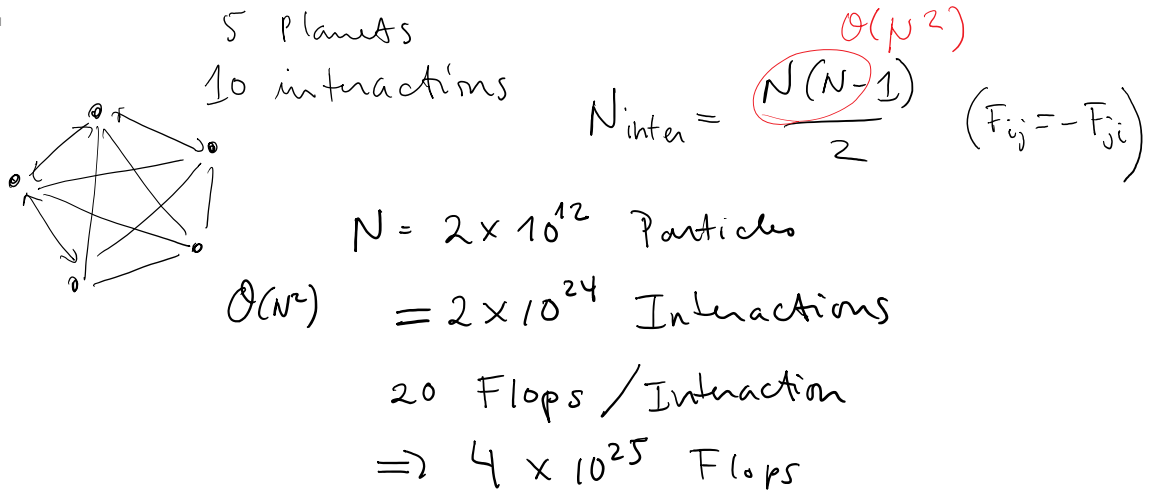 5 Planets
10 interactions
O(N²)
N_inter = N(N-1)/2 (F_ij = -F_ji)
N = 2 × 10¹² Particles
O(N²) = 2 × 10²⁴ Interactions
20 Flops / Interaction
⇒ 4 × 10²⁵ Flops